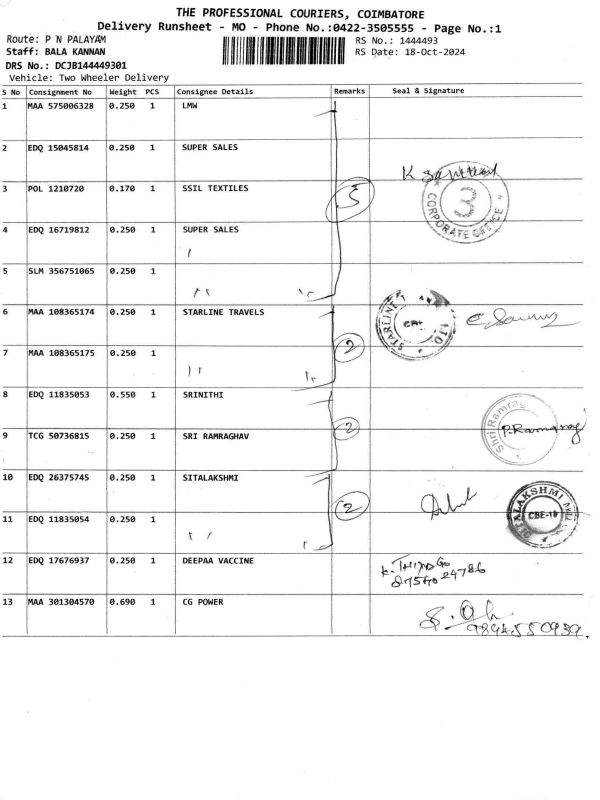 THE PROFESSIONAL COURIERS, COIMBATORE
Delivery Runsheet - MO - Phone No.:0422-3505555 - Page No.:1
Route: P N PALAYAM
RS No.: 1444493
Staff: BALA KANNAN
RS Date: 18-Oct-2024
DRS No.: DCJB144449301
Vehicle: Two Wheeler Delivery
S No Consignment No Weight PCS Consignee Details Remarks Seal & Signature
1 MAA 575006328 0.250 1 LMW
2 EDQ 15045814 0.250 1 SUPER SALES
3 POL 1210720 0.170 1 SSIL TEXTILES 5
3
CORPORATE OFFICE
4 EDQ 16719812 0.250 1 SUPER SALES
5 SLM 356751065 0.250 1 ''
6 MAA 108365174 0.250 1 STARLINE TRAVELS
STARLINE LTD.
7 MAA 108365175 0.250 1 '' 2
8 EDQ 11835053 0.550 1 SRINITHI
Shri Ramrag
P. Ramarag
9 TCG 50736815 0.250 1 SRI RAMRAGHAV 2
10 EDQ 26375745 0.250 1 SITALAKSHMI 2
SITALAKSHMI
CBE-18
11 EDQ 11835054 0.250 1 ''
12 EDQ 17676937 0.250 1 DEEPAA VACCINE
13 MAA 301304570 0.690 1 CG POWER
9894550939.